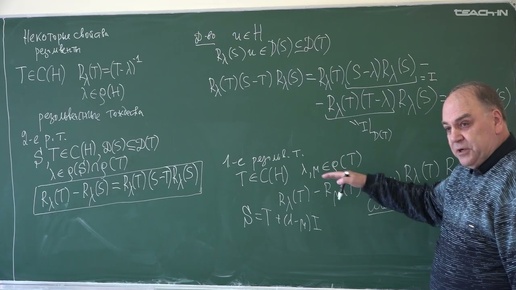 Некоторые свойства
резольвент
T∈C(H) R_λ(T)=(T-λ)^{-1}
λ∈ρ(H)
резольвентные тождества
2-е р.т.
S, T∈C(H), D(S)⊆D(T)
λ∈ρ(S)∩ρ(T)
R_λ(T)-R_λ(S)=R_λ(T)(S-T)R_λ(S)
Д-во u∈H
R_λ(S)u∈D(S)⊆D(T)
R_λ(T)(S-T)R_λ(S)=R_λ(T)(S-λ)R_λ(S)-
=I
-R_λ(T)(T-λ)R_λ(S)=
"I|_{D(T)}
1-е резольв. т.
T∈C(H) λ,μ∈ρ(T)
R_λ(T)-R
S=T+(λ-μ)I
TEACH-IN